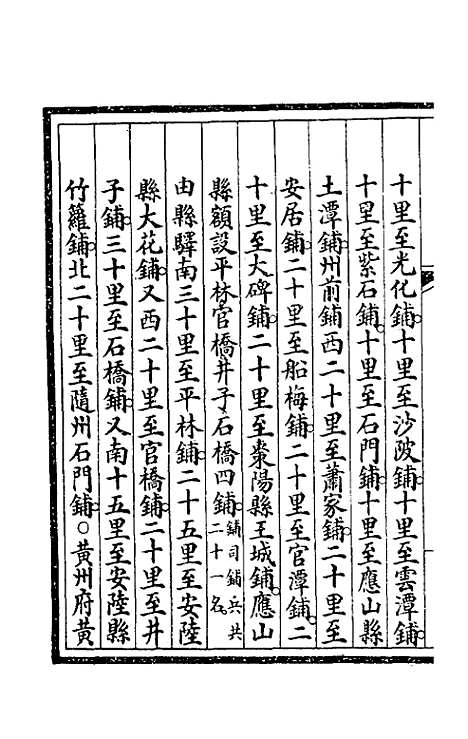 十里至光化鋪十里至沙陂鋪十里至雲潭鋪
十里至紫石鋪十里至石門鋪十里至應山縣
土潭鋪州前鋪西二十里至蕭家鋪二十里至
安居鋪二十里至船梅鋪二十里至官潭鋪二
十里至大碑鋪二十里至棗陽縣王城鋪應山
縣額設平林官橋井子石橋四鋪鋪司鋪兵共二十一名
由縣驛南三十里至平林鋪二十五里至安陸
縣大花鋪又西二十里至官橋鋪二十里至井
子鋪三十里至石橋鋪又南十五里至安陸縣
竹籮鋪北二十里至隨州石門鋪○黄州府黄